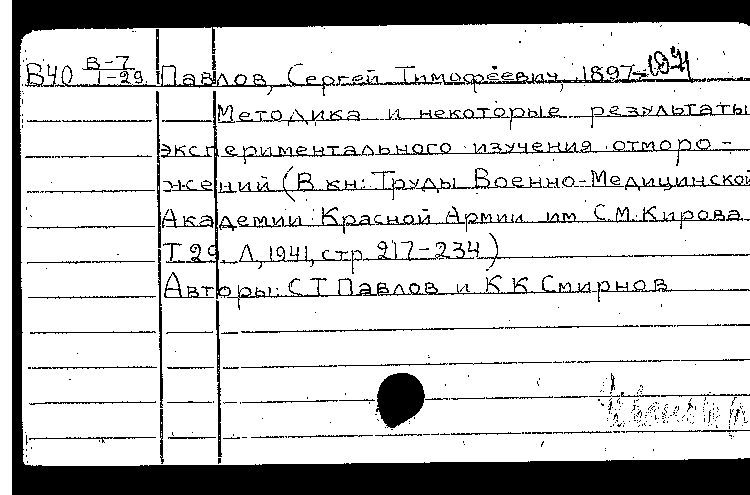 В40 В-7/1-29 Павлов, Сергей Тимофеевич, 1897-1971
Методика и некоторые результаты
экспериментального изучения отморо-
жений (В кн: Труды Военно-Медицинской
Академии Красной Армии им С.М.Кирова
Т 29. Л, 1941, стр. 217-234)
Авторы: С Т Павлов и К К Смирнов